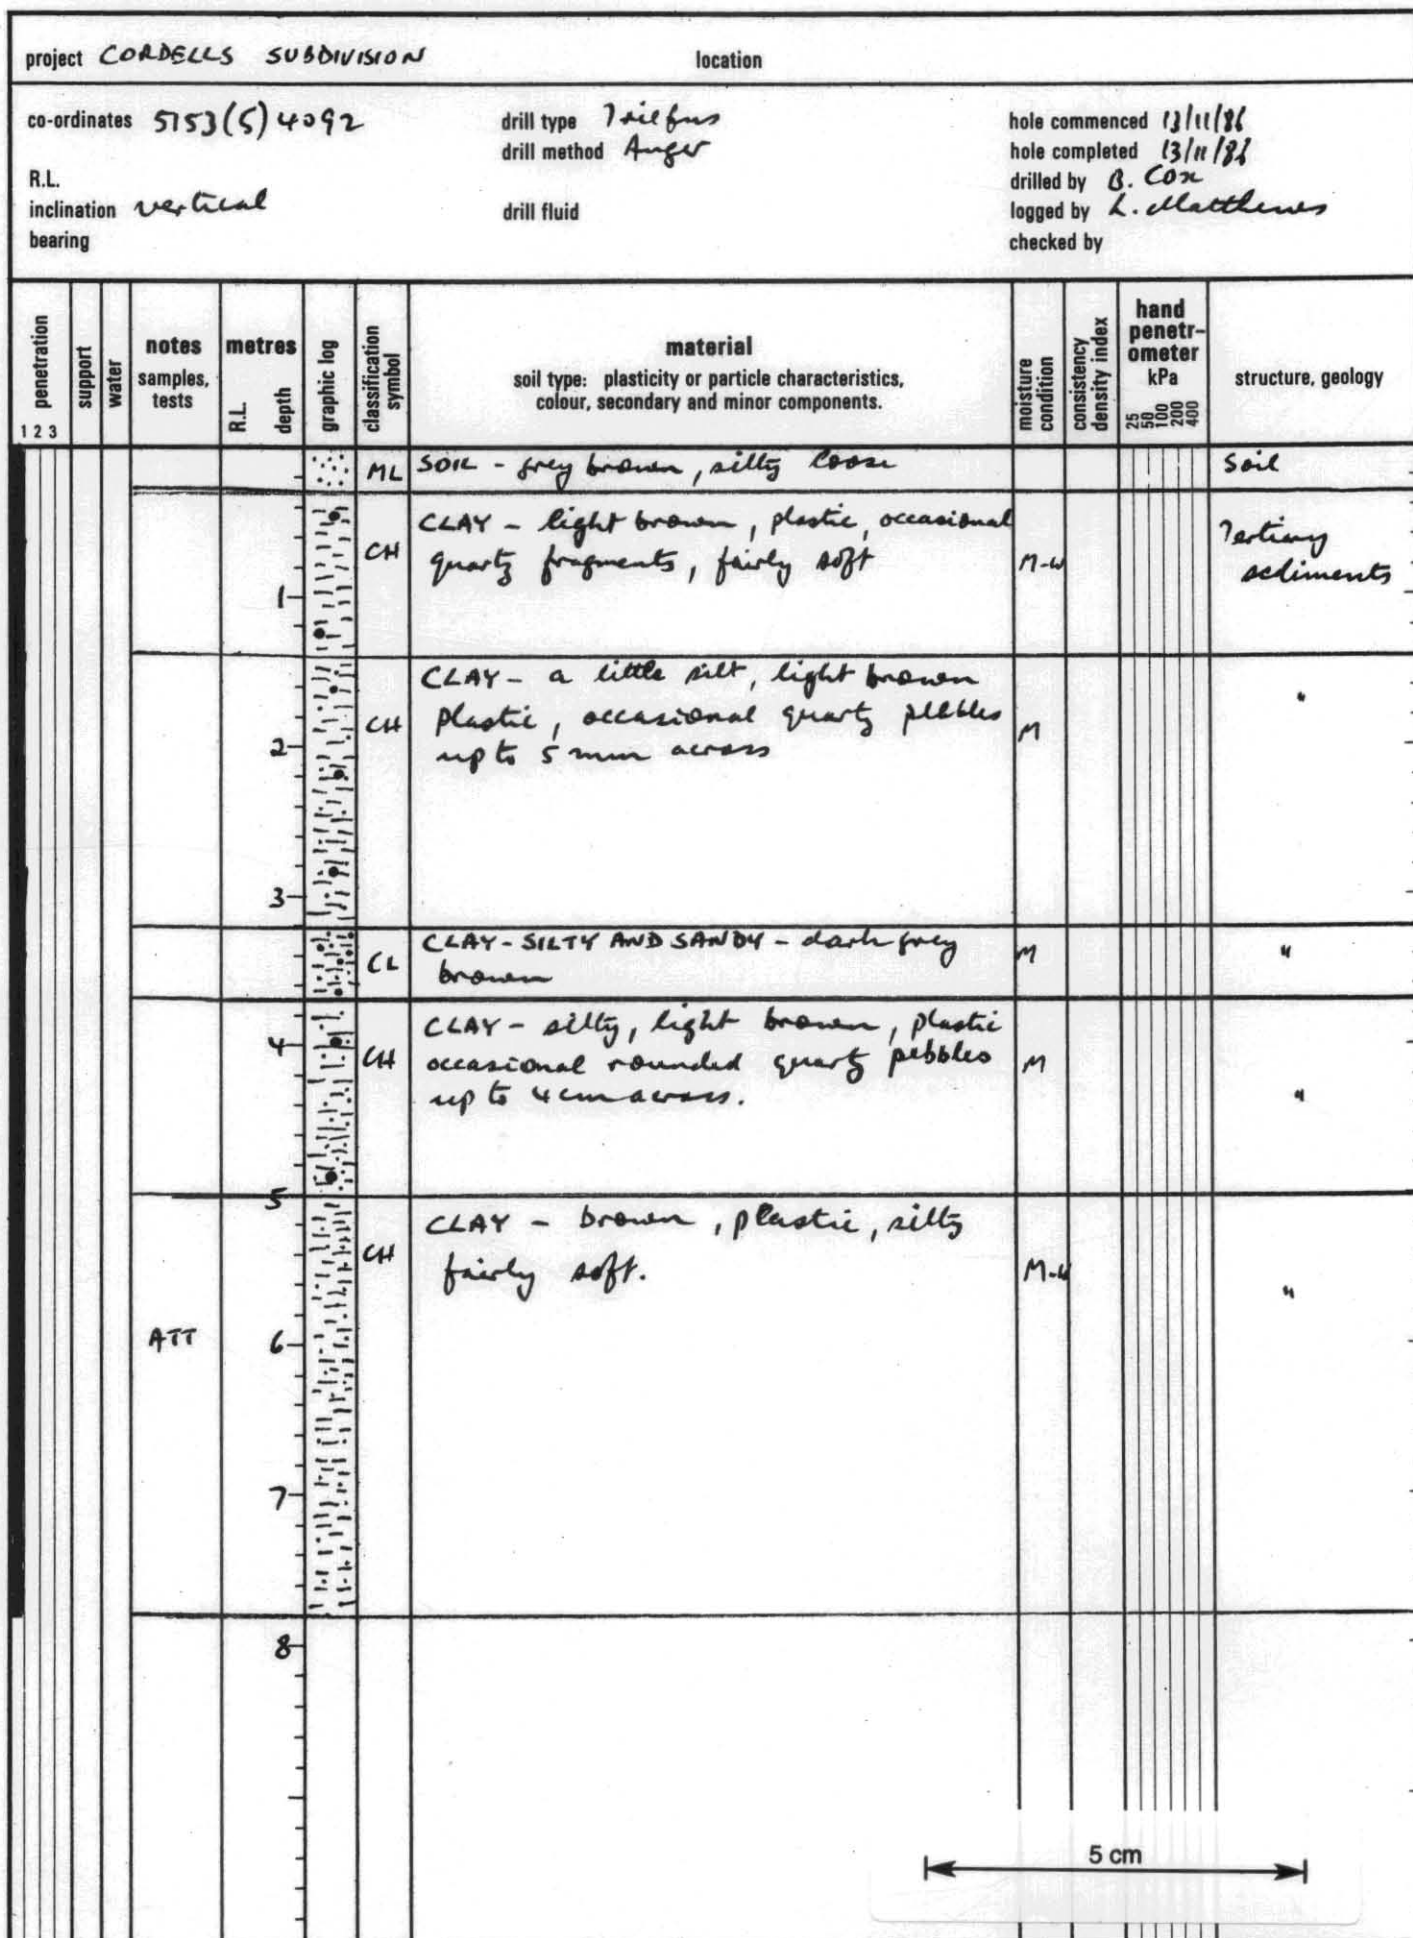 project CORDELLS SUBDIVISION location
co-ordinates 5153(5)4092
R.L.
inclination vertical
bearing
drill type
drill method Auger
drill fluid
hole commenced 13/11/86
hole completed 13/11/86
drilled by B. Cox
logged by L. Matthews
checked by
penetration
1 2 3
support
water
notes
samples,
tests
metres
R.L.
depth
graphic log
classification
symbol
material
soil type: plasticity or particle characteristics,
colour, secondary and minor components.
moisture
condition
consistency
density index
hand
penetr-
ometer
kPa
25
50
100
200
400
structure, geology
ML SOIL - grey brown, silty loose Soil
CH CLAY - light brown, plastic, occasional
quartz fragments, fairly soft M-W Tertiary
sediments
1
CLAY - a little silt, light brown
CH plastic, occasional quartz pebbles M "
2 up to 5 mm across
3
CLAY - SILTY AND SANDY - dark grey M "
CL brown
CLAY - silty, light brown, plastic
4 CH occasional rounded quartz pebbles M
up to 4 cm across. "
5
CLAY - brown, plastic, silty
CH fairly soft. M-W "
ATT 6
7
8
5 cm